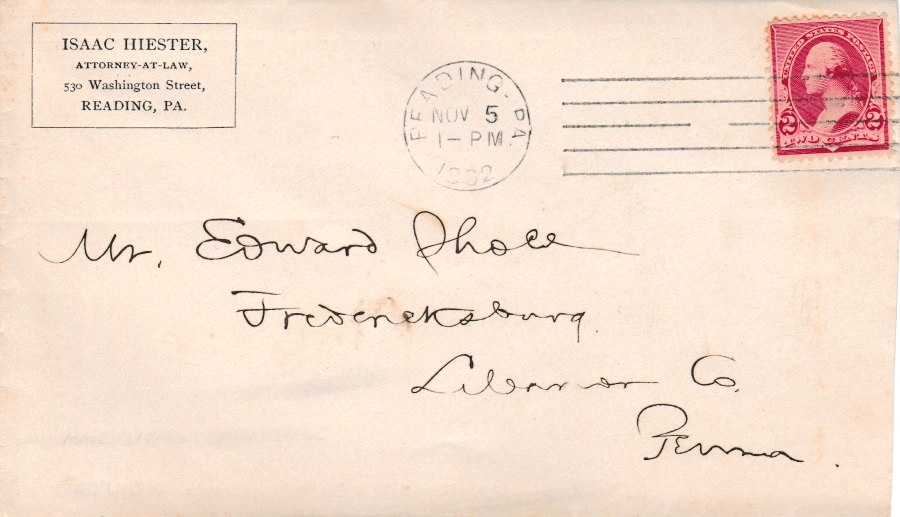 ISAAC HIESTER,
ATTORNEY-AT-LAW,
530 Washington Street,
READING, PA.
READING, PA.
NOV 5
1-PM
UNITED STATES POSTAGE
2 2
TWO CENTS
Mr. Edward
Fredericksburg
Lebanon Co.
Penna.